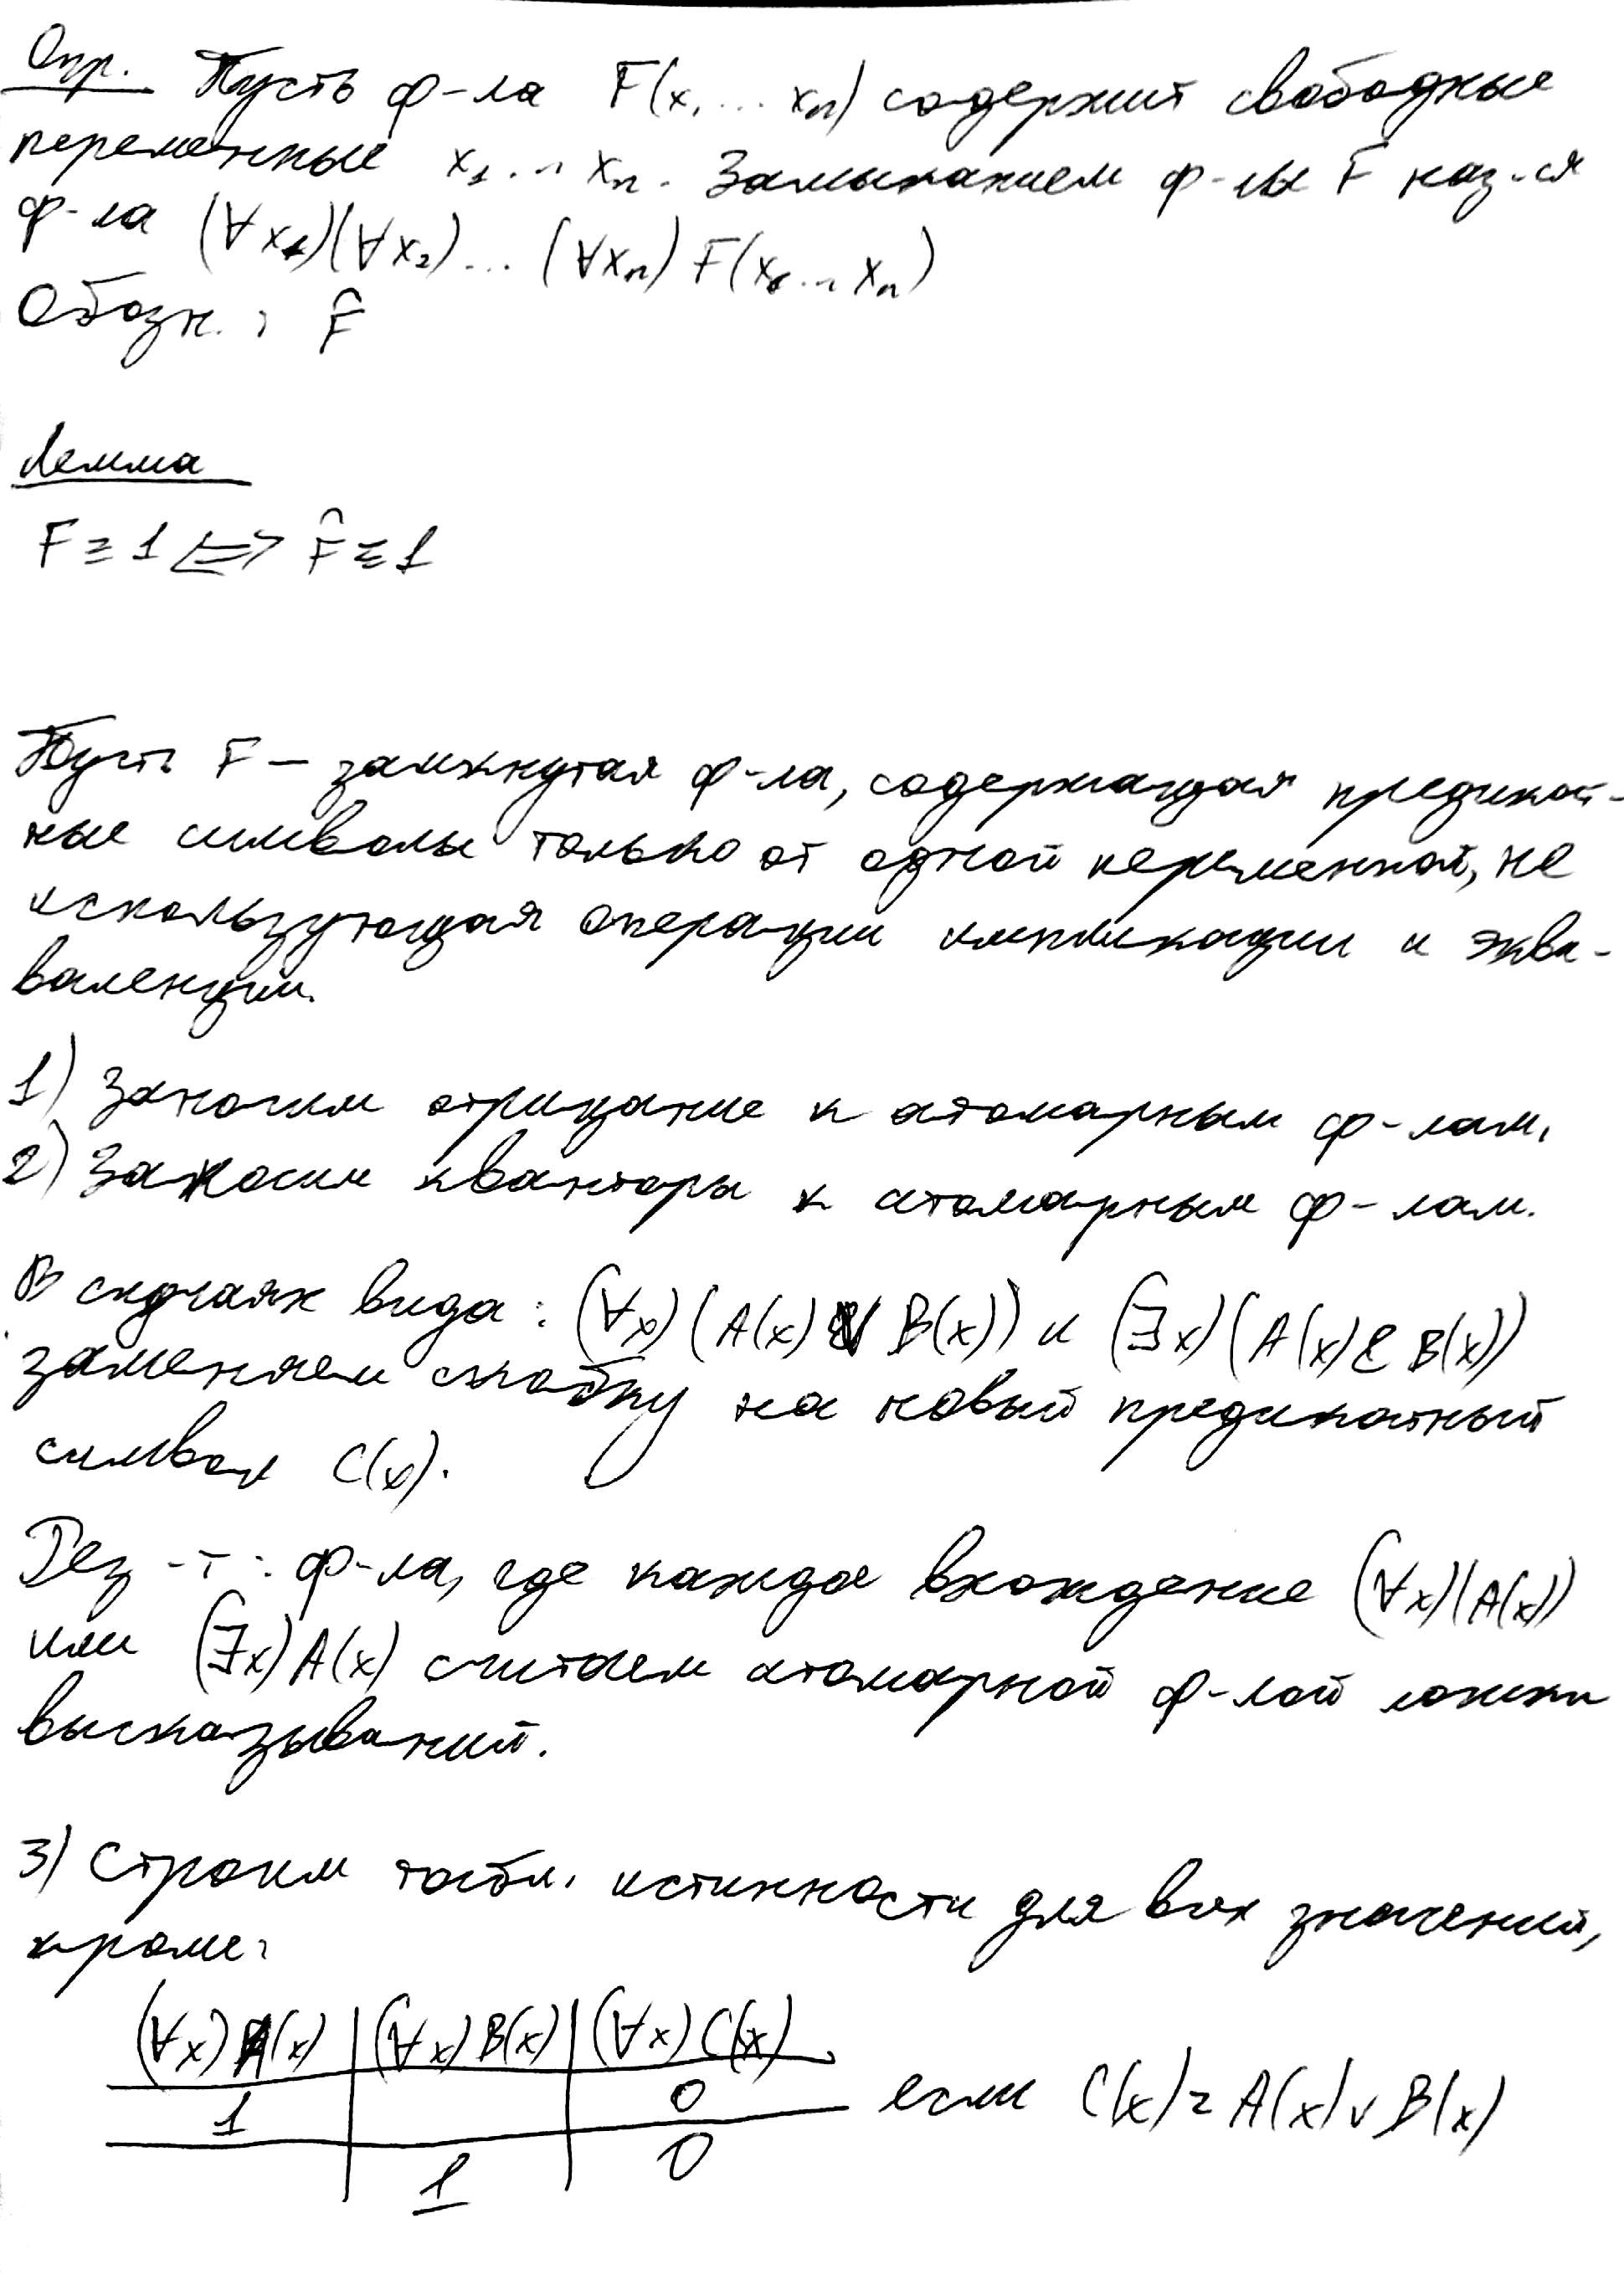 Опр. Пусть ф-ла F(x₁ ... xₙ) содержит свободные
переменные x₁ ... xₙ. Замыканием ф-лы F наз-ся
ф-ла (∀x₁)(∀x₂) ... (∀xₙ) F(x₁ ... xₙ)
Обозн.: F̂
Лемма
F ≡ 1 <=> F̂ ≡ 1
Пусть F – замкнутая ф-ла, содержащая предикат-
ные символы только от одной переменной, не
использующая операции импликации и экви-
валенции.
1) Заносим отрицание к атомарным ф-лам.
2) Заносим кванторы к атомарным ф-лам.
В случаях вида: (∀x)(A(x) ∨ B(x)) и (∃x)(A(x) & B(x))
заменяем скобку на новый предикатный
символ C(x).
Рез-т: ф-ла, где каждое вхождение (∀x)(A(x))
или (∃x)A(x) считаем атомарной ф-лой логики
высказываний.
3) Строим табл. истинности для всех значений,
кроме:
(∀x)A(x) | (∀x)B(x) | (∀x)C(x)
1 | | 0 если C(x) = A(x) ∨ B(x)
| 1 | 0